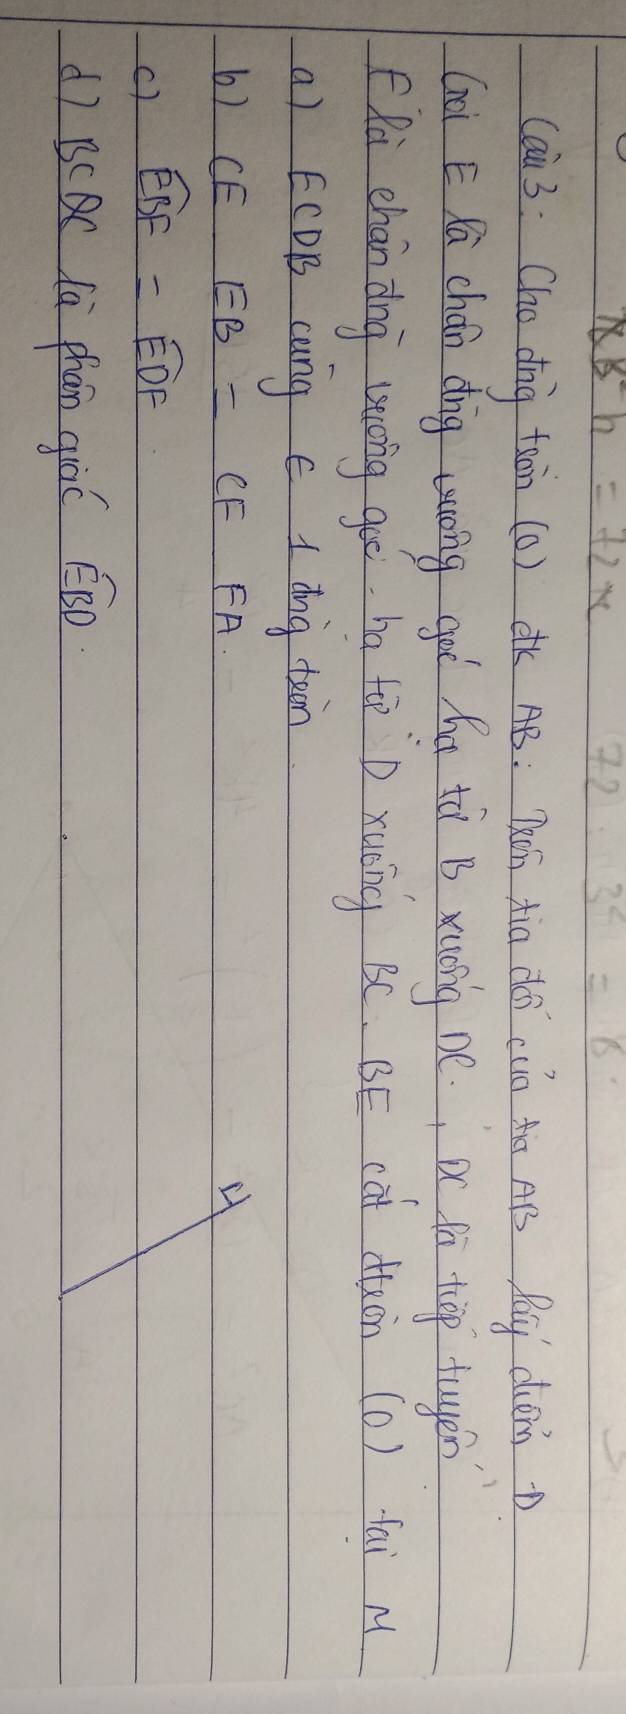 πR²h = 72π
Câu 3: Cho đng tròn (O) đk AB: Trên tia đối của tia AB lấy điểm D
Gọi E là chân đng vuông góc hạ từ B xuống DC, DC là tiếp tuyến
F là chân đng vuông góc hạ từ D xuống BC. BE cắt đtròn (O) tại M
a) ECDB cùng ∈ 1 đng tròn.
b) CE EB = CF FA.
c) EBF = EDF
d) BC là phân giác EBD.
M